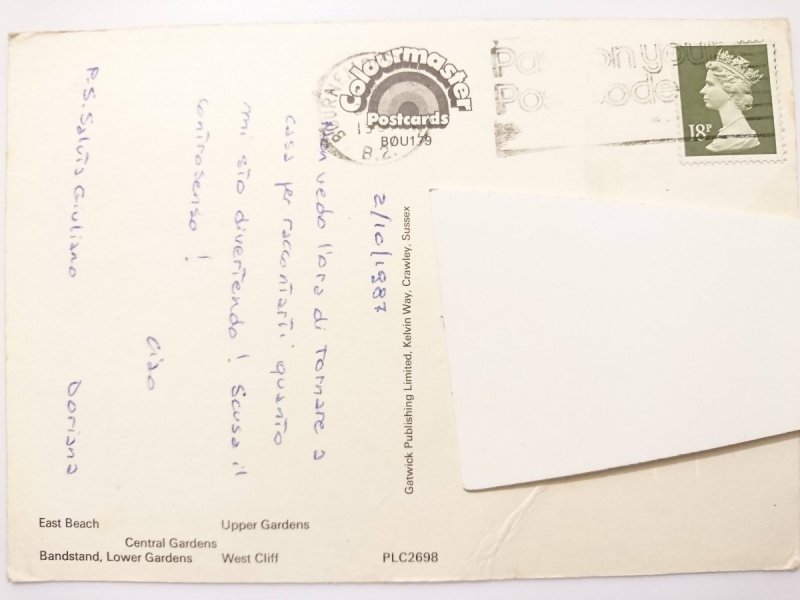 Colourmaster
Postcards
BOU179
Post on your
Postcode
18P
2/10/1987
Non vedo l'ora di tornare a
casa per raccontarti quanto
mi sto divertendo! Scusa il
controsenso!
Ciao
Doriana
P.S. Saluta Giuliano
Gatwick Publishing Limited, Kelvin Way, Crawley, Sussex
East Beach
Upper Gardens
Central Gardens
Bandstand, Lower Gardens
West Cliff
PLC2698